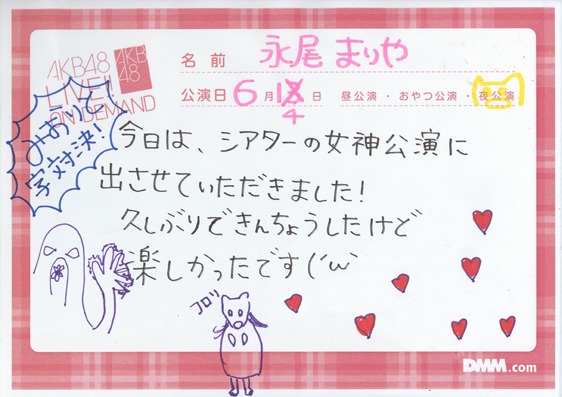 AKB48
LIVE!!
ON DEMAND
AKB
48
名前 永尾まりや
公演日 6月4日 昼公演・おやつ公演・夜公演
みおりと
字対決!
今日は、シアターの女神公演に
出させていただきました!
久しぶりできんちょうしたけど
楽しかったです(´ω`
コロッ
DMM.com